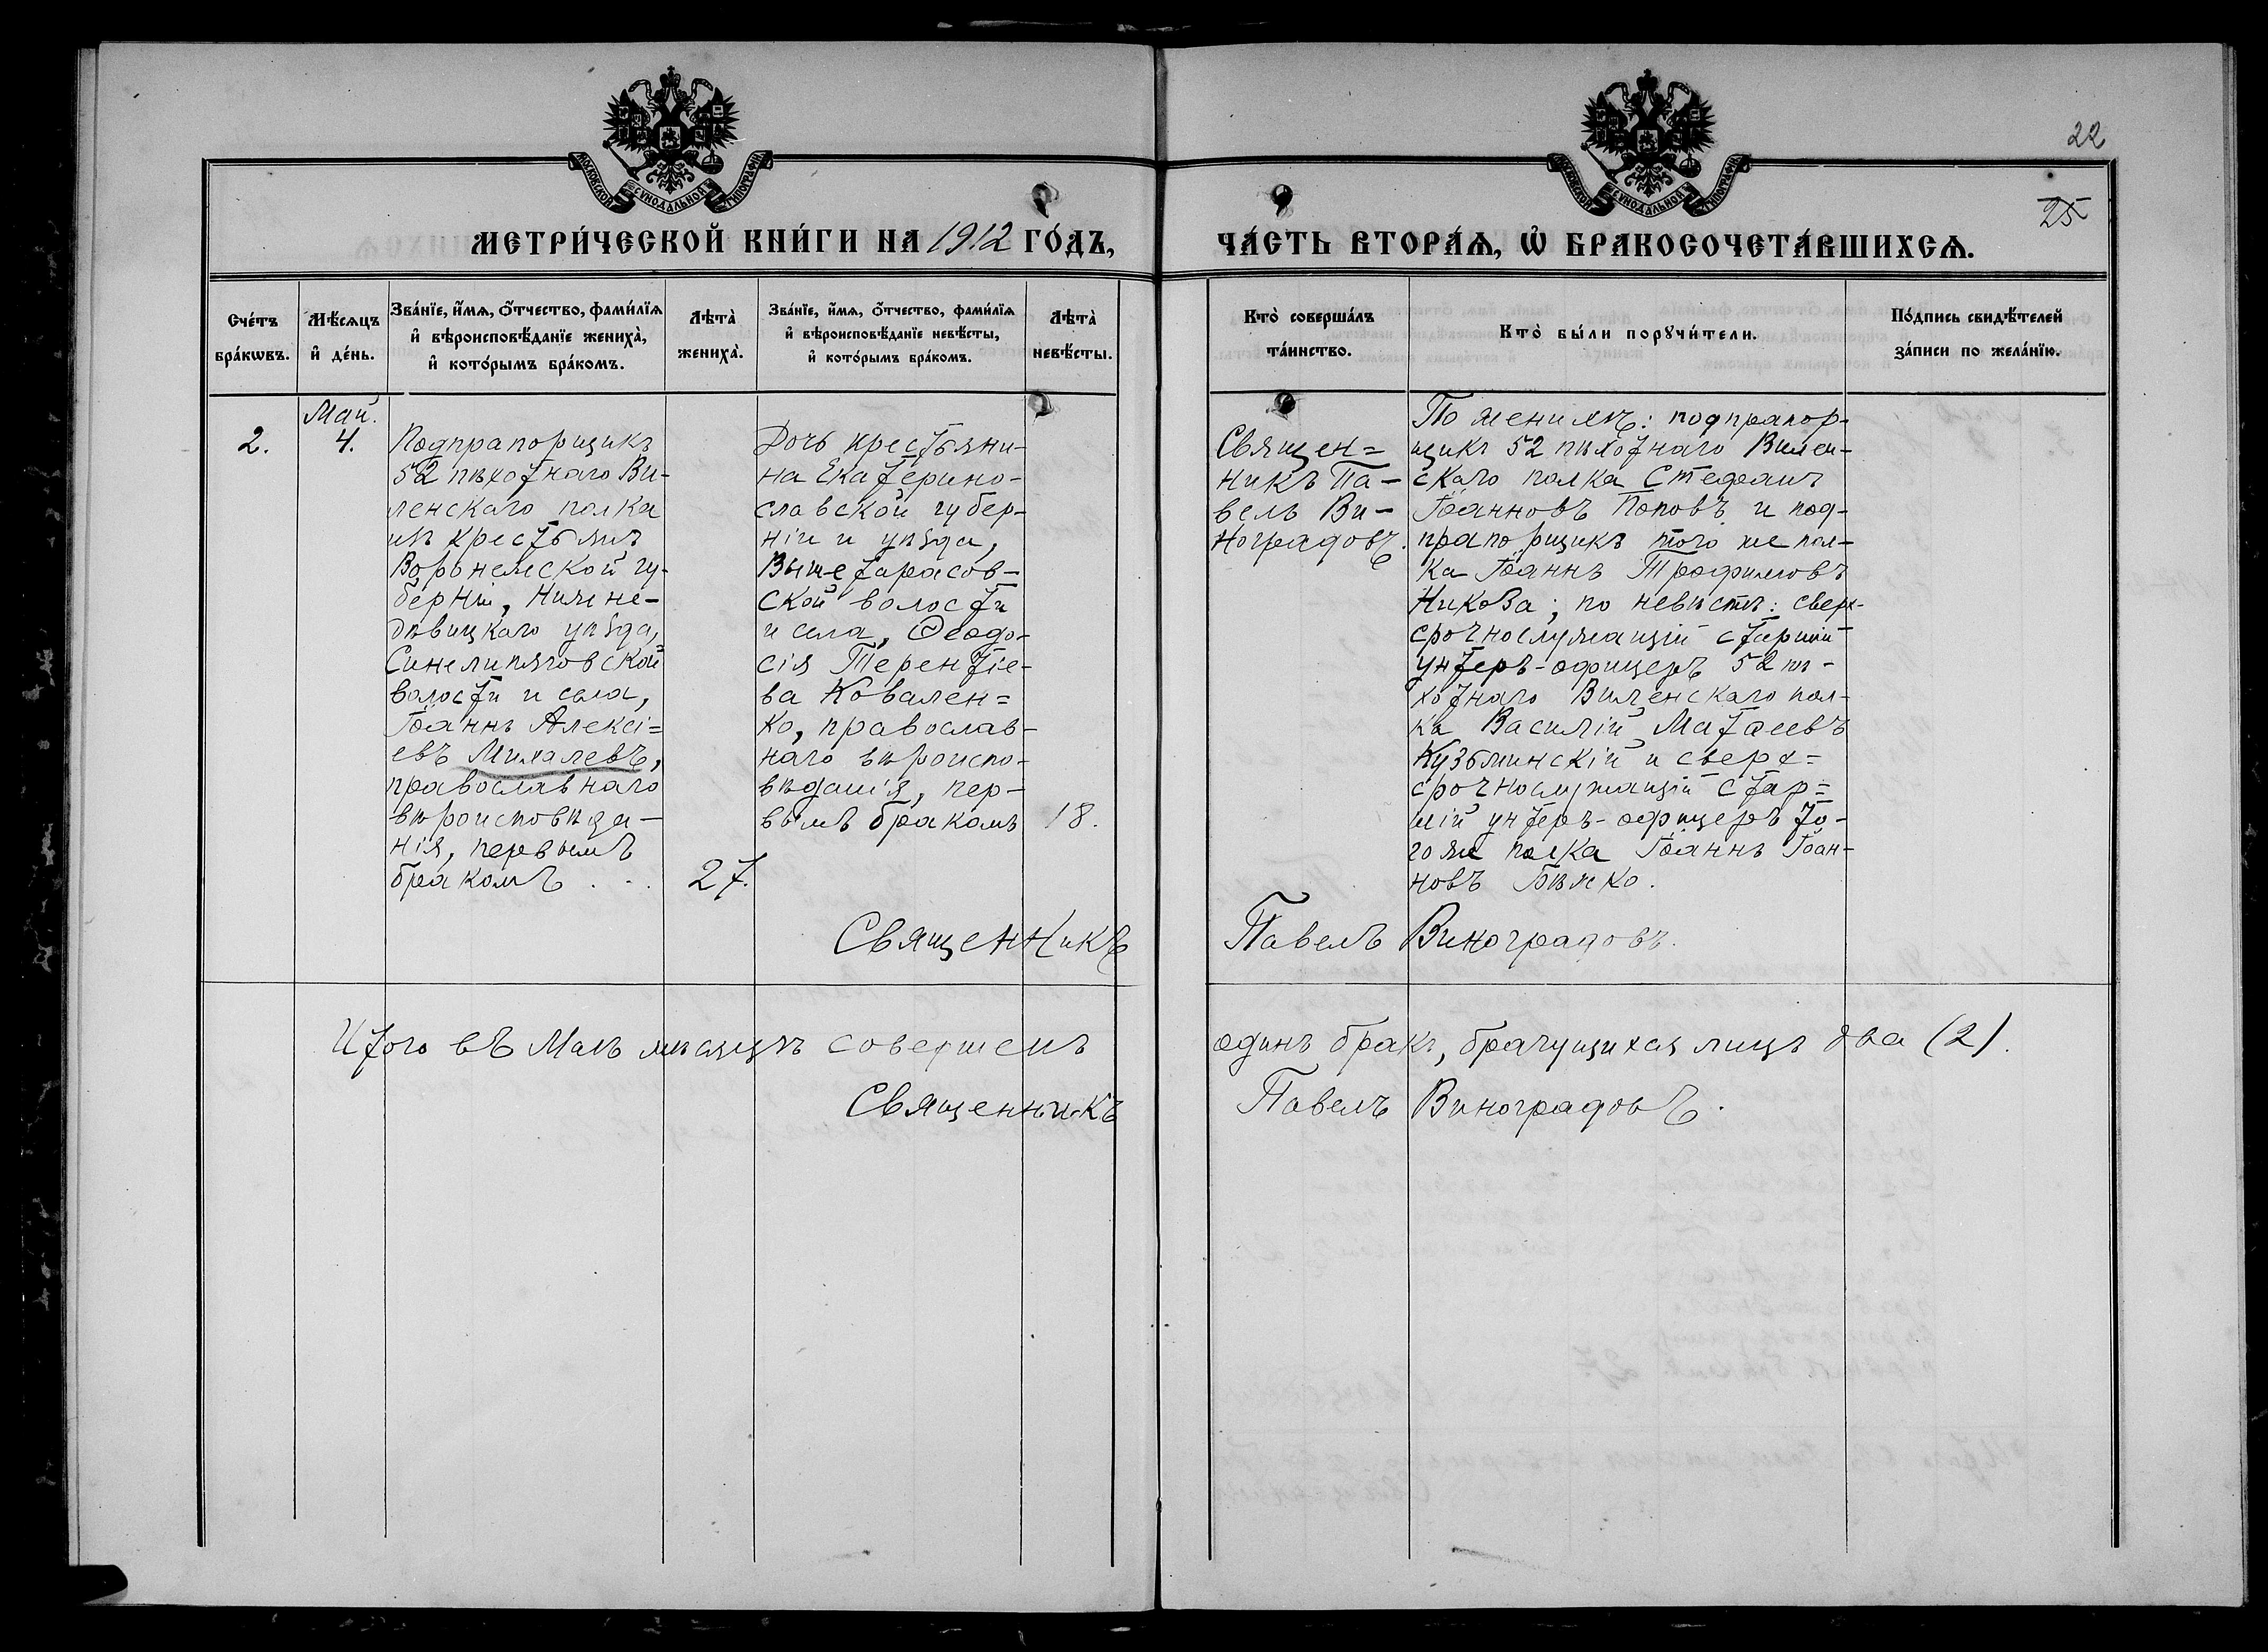 22
25
МОСКОВСКОЙ СѴНОДАЛЬНОЙ ТИПОГРАФІИ
МОСКОВСКОЙ СѴНОДАЛЬНОЙ ТИПОГРАФІИ
МЕТРИ́ЧЕСКОЙ КНИ́ГИ НА 1912 ГО́ДЪ,
ЧА́СТЬ ВТОРА́Ѧ, Ѡ҆ БРАКОСОЧЕТА́ВШИХСѦ.
Сче́тъ
бра́кѡвъ.
Мѣ́сѧцъ
и҆ де́нь.
Зва́нїе, и҆́мѧ, о҆́тчество, фами́лїѧ
и҆ вѣроисповѣ́данїе жениха̀,
и҆ кото́рымъ бра́комъ.
Лѣта̀
жениха̀.
Зва́нїе, и҆́мѧ, о҆́тчество, фами́лїѧ
и҆ вѣроисповѣ́данїе невѣ́сты,
и҆ кото́рымъ бра́комъ.
Лѣта̀
невѣ́сты.
Кто̀ соверша́лъ
та́инство.
Кто̀ бы́ли порꙋчи́тели.
По́дпись свидѣ́телей
за́писи по жела́нїю.
2.
Май.
4.
Подпрапорщикъ
52 пѣхотнаго Ви-
ленскаго полка
изъ крестьянъ
Воронежской гу-
берніи, Нижне-
дѣвицкаго уѣзда,
Синелипяговской
волости и села,
Іоаннъ Алексі=
евъ Михалевъ,
православнаго
вѣроисповѣда-
нія, первымъ
бракомъ . . .
27.
Дочь крестьяни-
на Екатерино-
славской губер-
ніи и уѣзда,
Вышетарасов-
ской волости
и села, Ѳеодо-
сія Терентіе-
ва Ковален=
ко, православ-
наго вѣроиспо-
вѣданія, пер-
вымъ бракомъ
18.
Священ=
никъ Па-
велъ Ви-
ноградовъ.
По женихѣ: подпрапор-
щикъ 52 пѣхотнаго Вилен-
скаго полка Стефанъ
Іоанновъ Поповъ и под-
прапорщикъ того же пол-
ка Іоаннъ Трофимовъ
Никова; по невѣстѣ: сверх-
срочнослужащій старшій
унтеръ-офицеръ 52 пѣ-
хотнаго Виленскаго пол-
ка Василій Матѳеевъ
Кузьминскій и сверх=
срочнослужащій стар=
шій унтеръ-офицеръ то-
го же полка Іоаннъ Іоан-
новъ Бѣжко.
Священникъ Павелъ Виноградовъ.
Итого въ Маѣ мѣсяцѣ совершенъ одинъ бракъ, брачущихся лицъ два (2).
Священникъ Павелъ Виноградовъ.